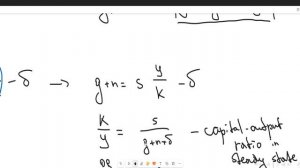 - δ → g+n = s y/k - δ
k/y = s/(g+n+δ) - capital-output
ratio in
steady state